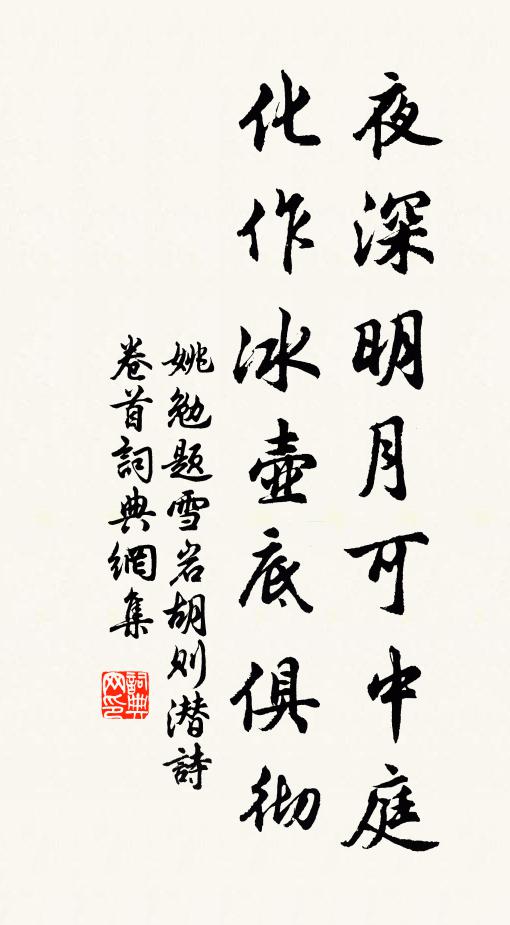 夜深明月可中庭
化作冰壺底俱彻
姚勉题雪岩胡则潜詩
卷首詞典網集
詞典网印